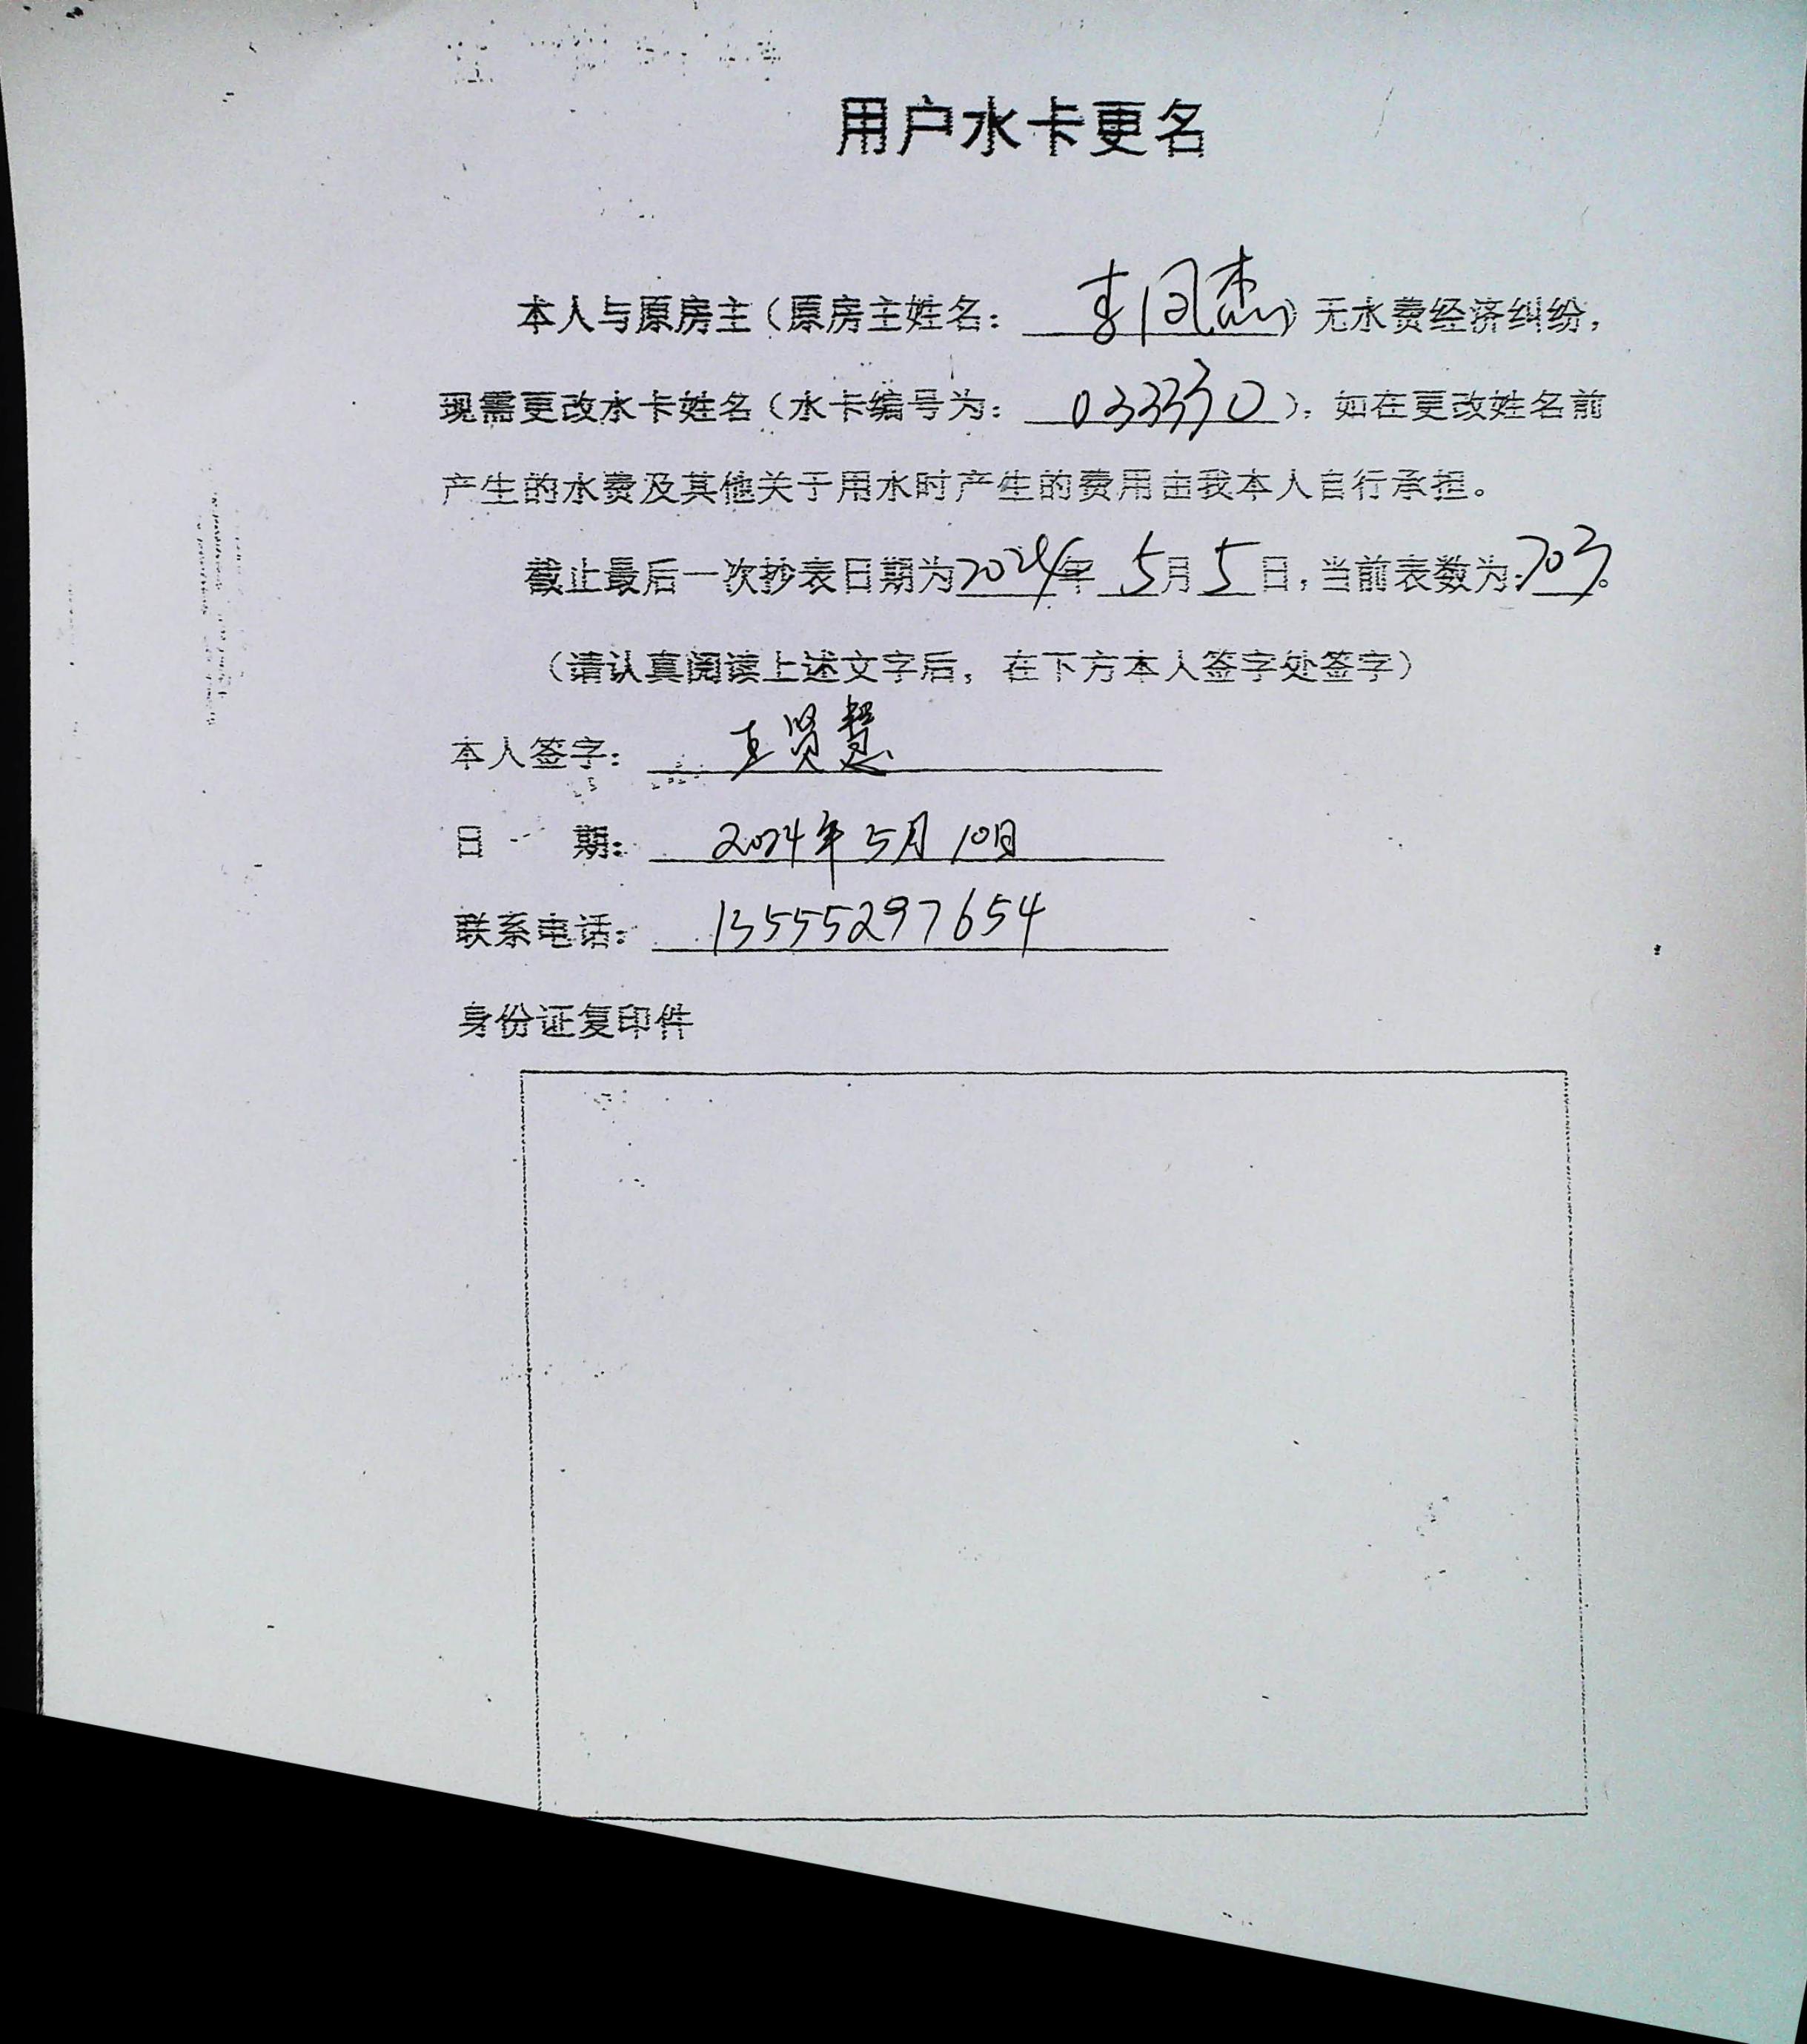 用户水卡更名
本人与原房主（原房主姓名：李凤杰）无水费经济纠纷，
现需更改水卡姓名（水卡编号为：033330），如在更改姓名前
产生的水费及其他关于用水时产生的费用由我本人自行承担。
截止最后一次抄表日期为2024年5月5日，当前表数为：703。
（请认真阅读上述文字后，在下方本人签字处签字）
本人签字：王贤慧
日期：2024年5月10日
联系电话：13555297654
身份证复印件